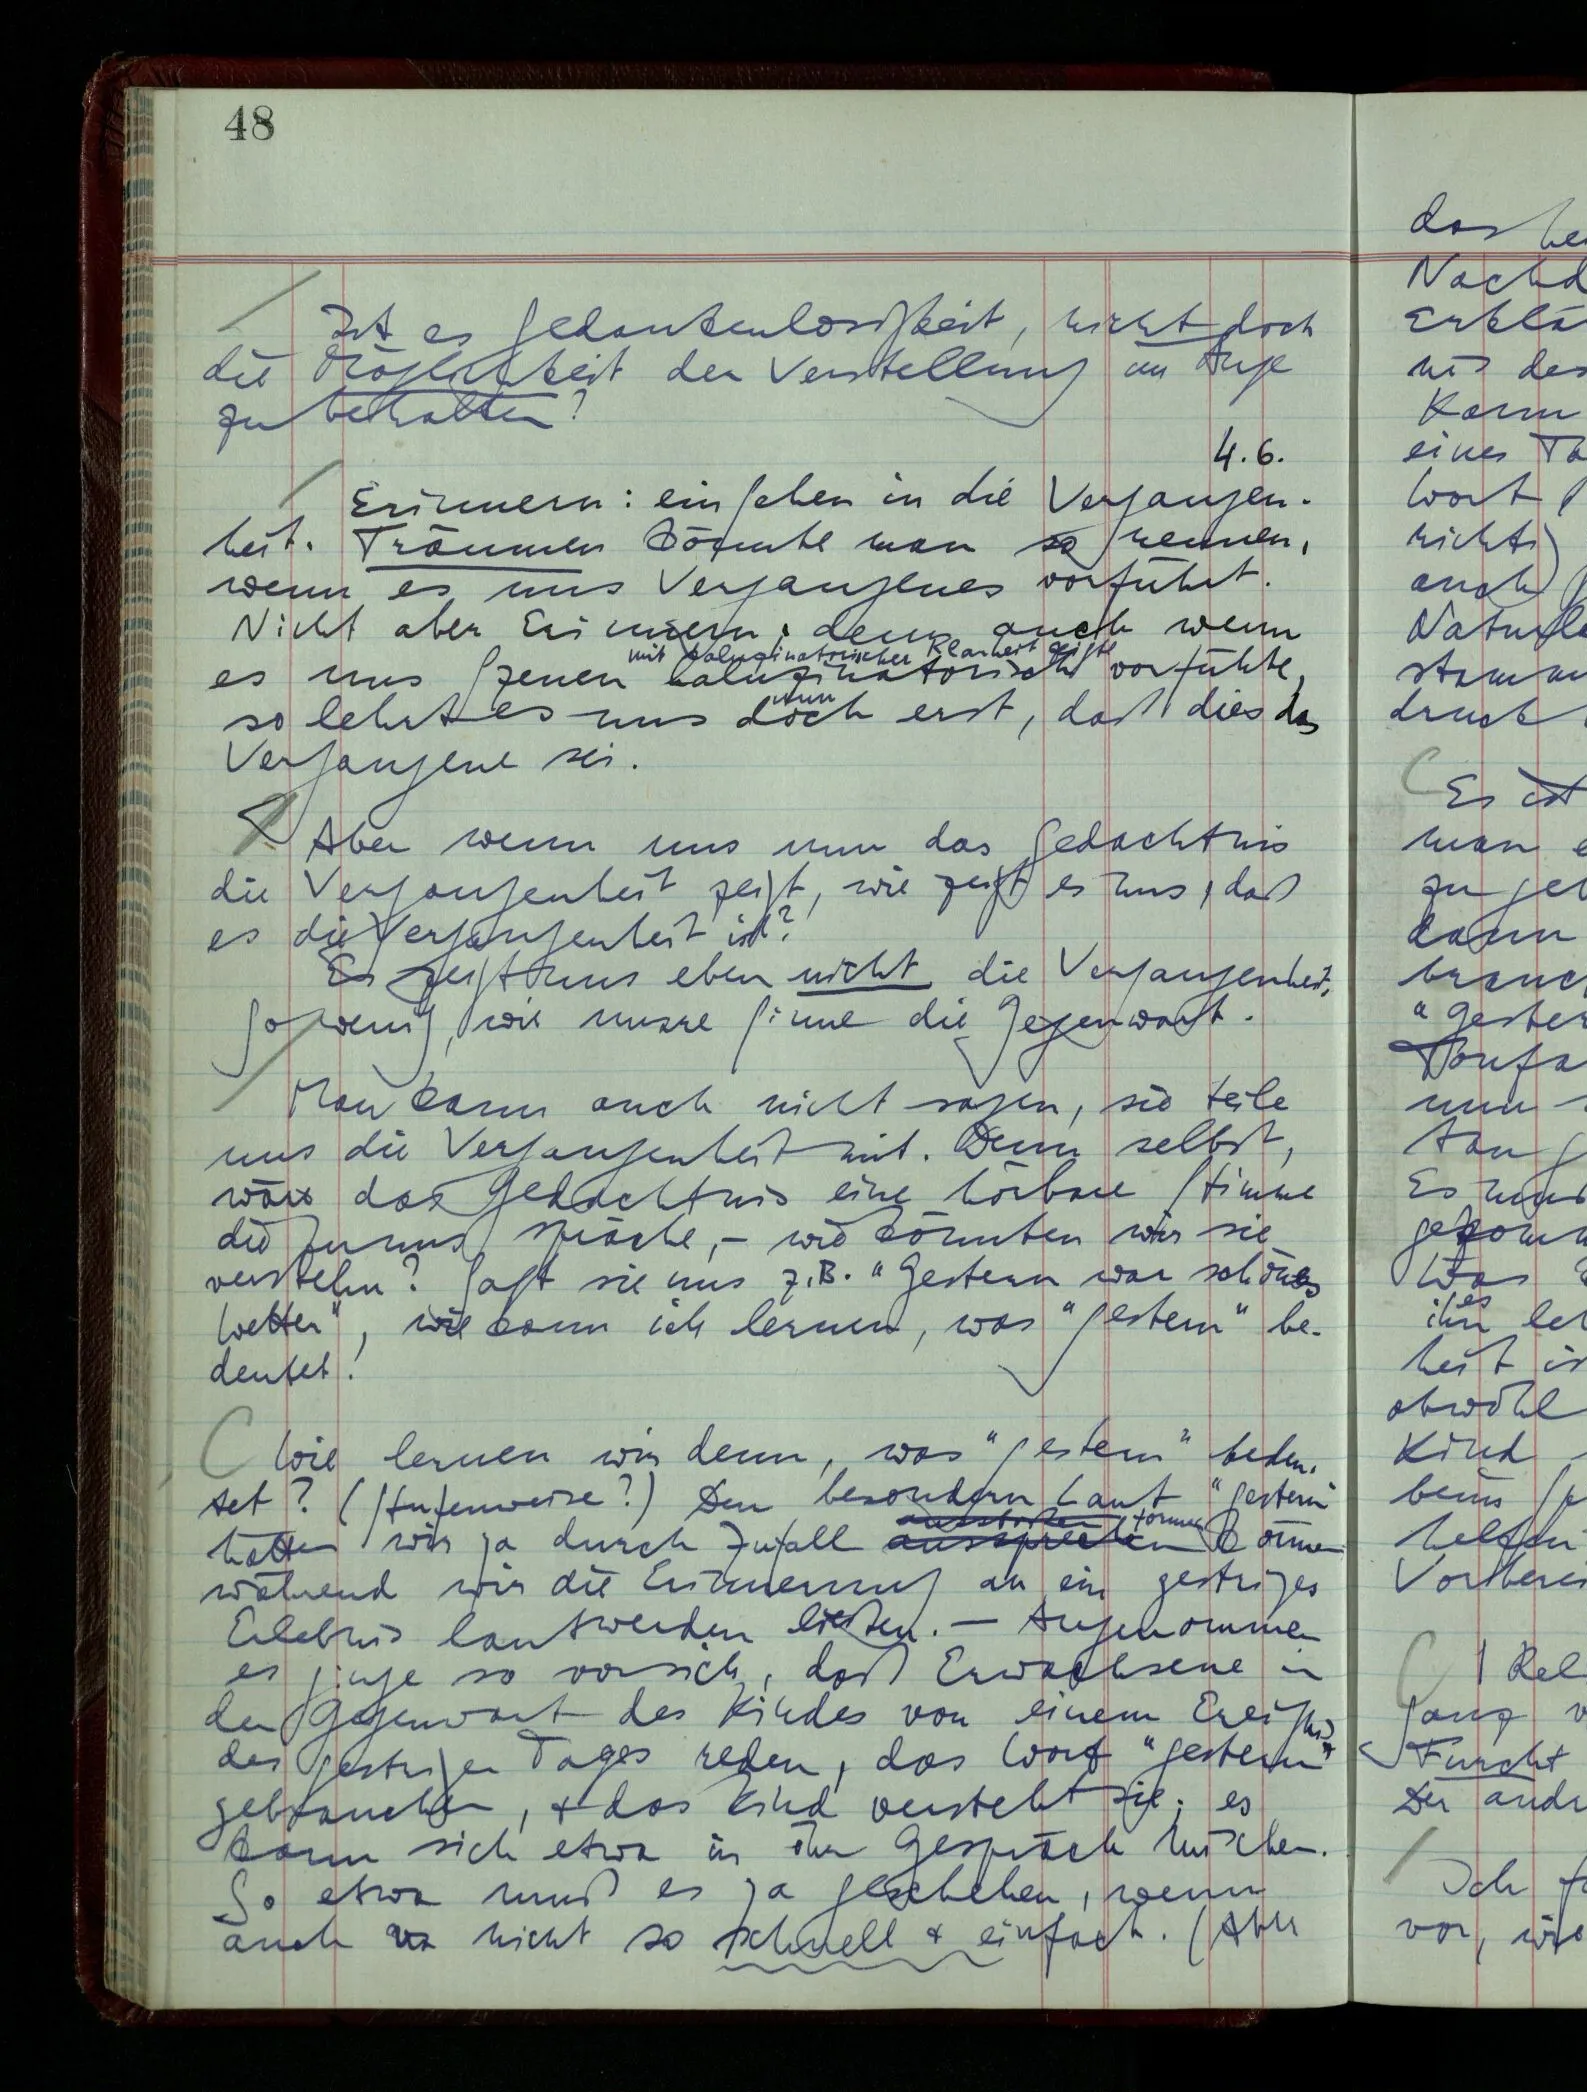 48
Ist es Gedankenlosigkeit, nicht doch
die Möglichkeit der Verstellung im Auge
zu behalten?
4.6.
Erinnern: ein Sehen in die Vergangen-
heit. Träumen könnte man so nennen,
wenn es uns Vergangenes vorführt.
Nicht aber Erinnern; denn auch wenn
mit haluzinatorischer Klarheit zeigte
es uns Szenen haluzinatorisch vorführte,
nun
so lehrt es uns doch erst, daß dies das
Vergangene sei.
Aber wenn uns nun das Gedächtnis
die Vergangenheit zeigt, wie zeigt es uns, daß
es die Vergangenheit ist?
Es zeigt uns eben nicht die Vergangenheit.
So wenig, wie unsre Sinne die Gegenwart.
Man kann auch nicht sagen, sie teile
uns die Vergangenheit mit. Denn selbst,
wäre das Gedächtnis eine hörbare Stimme
die zu uns spräche, – wie könnten wir sie
verstehn? Sagt sie uns z.B. "Gestern war schönes
Wetter", wie kann ich lernen, was "gestern" be-
deutet!
Wie lernen wir denn, was "gestern" bedeu-
tet? (Stufenweise?) Den besondern Laut "gestern"
formen
hätten wir ja durch Zufall aussprechen können
während wir die Erinnerung an ein gestriges
Erlebnis laut werden ließen. — Angenommen
es ginge so vorsich, daß Erwachsene in
der Gegenwart des Kindes von einem Ereignis
des gestrigen Tages reden, das Wort "gestern"
gebrauchen, & das Kind versteht sie; es
kann sich etwa in ihr Gespräch mischen.
So etwa muß es ja geschehen, wenn
auch nicht so schnell & einfach. (Aber
das
Nachd
Erklä
uns des
Kann
eines Ta
Wort
nichts
auch
Naturl
stamm
druck
Es ist
man e
zu geb
kann
brauch
"gester
Tonfa
nun
tan
Es muß
gekomm
Was
es
ihn leh
heit is
obwohl
Kind
beim Sp
helfen
Vorberei
Rel
ganz v
Furcht
Der andr
Ich
vor, wie